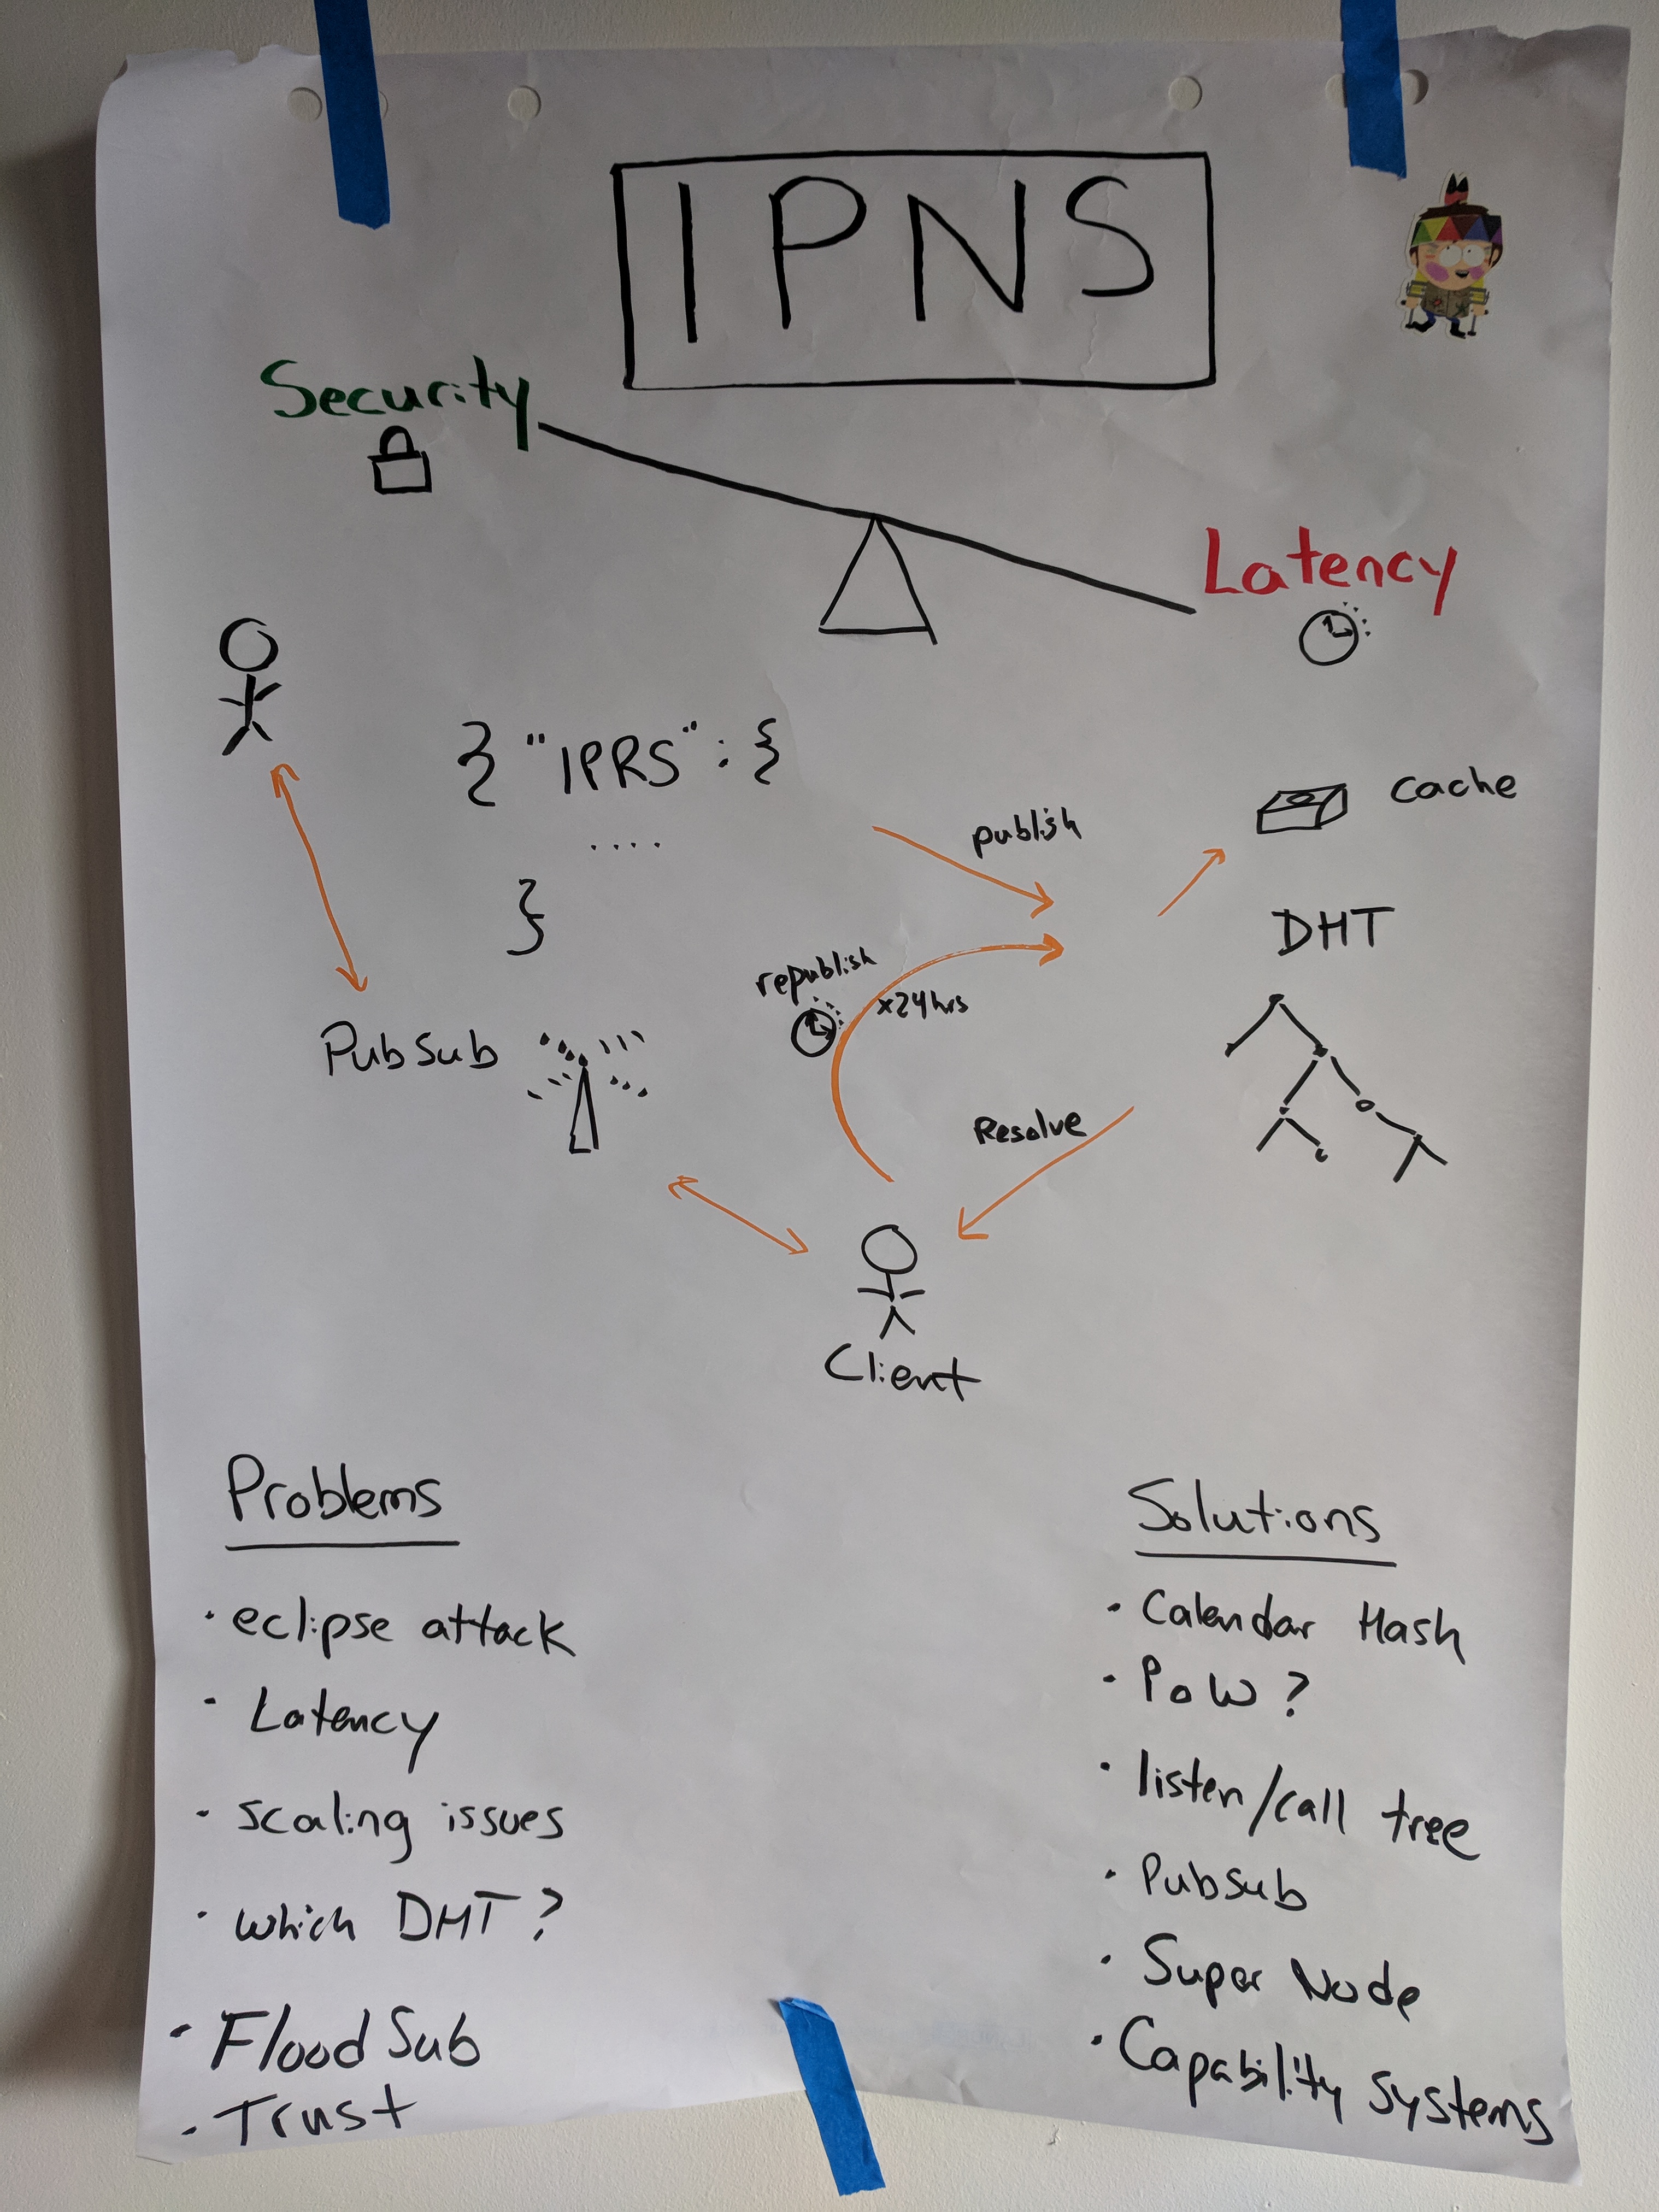 IPNS
Security
Latency
} "IPRS" : {
....
}
publish
cache
DHT
republish
x24hrs
PubSub
Resolve
Client
Problems
· eclipse attack
· Latency
· scaling issues
· which DHT?
· FloodSub
· Trust
Solutions
· Calendar Hash
· PoW?
· listen/call tree
· Pubsub
· Super Node
· Capability Systems